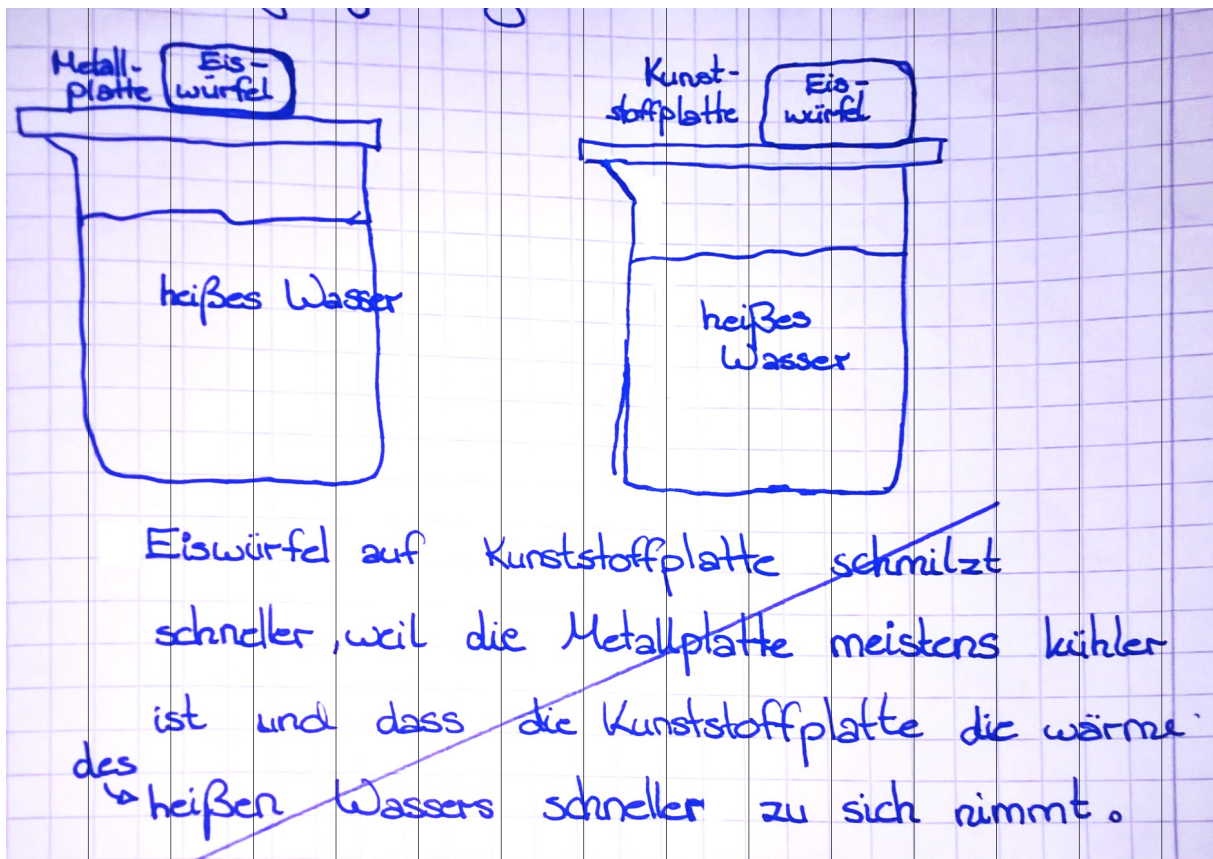 Metall-
platte
Eis-
würfel
heißes Wasser
Kunst-
stoffplatte
Eis-
würfel
heißes
Wasser
Eiswürfel auf Kunststoffplatte schmilzt
schneller, weil die Metallplatte meistens kühler
ist und dass die Kunststoffplatte die wärme
des
heißen Wassers schneller zu sich nimmt.